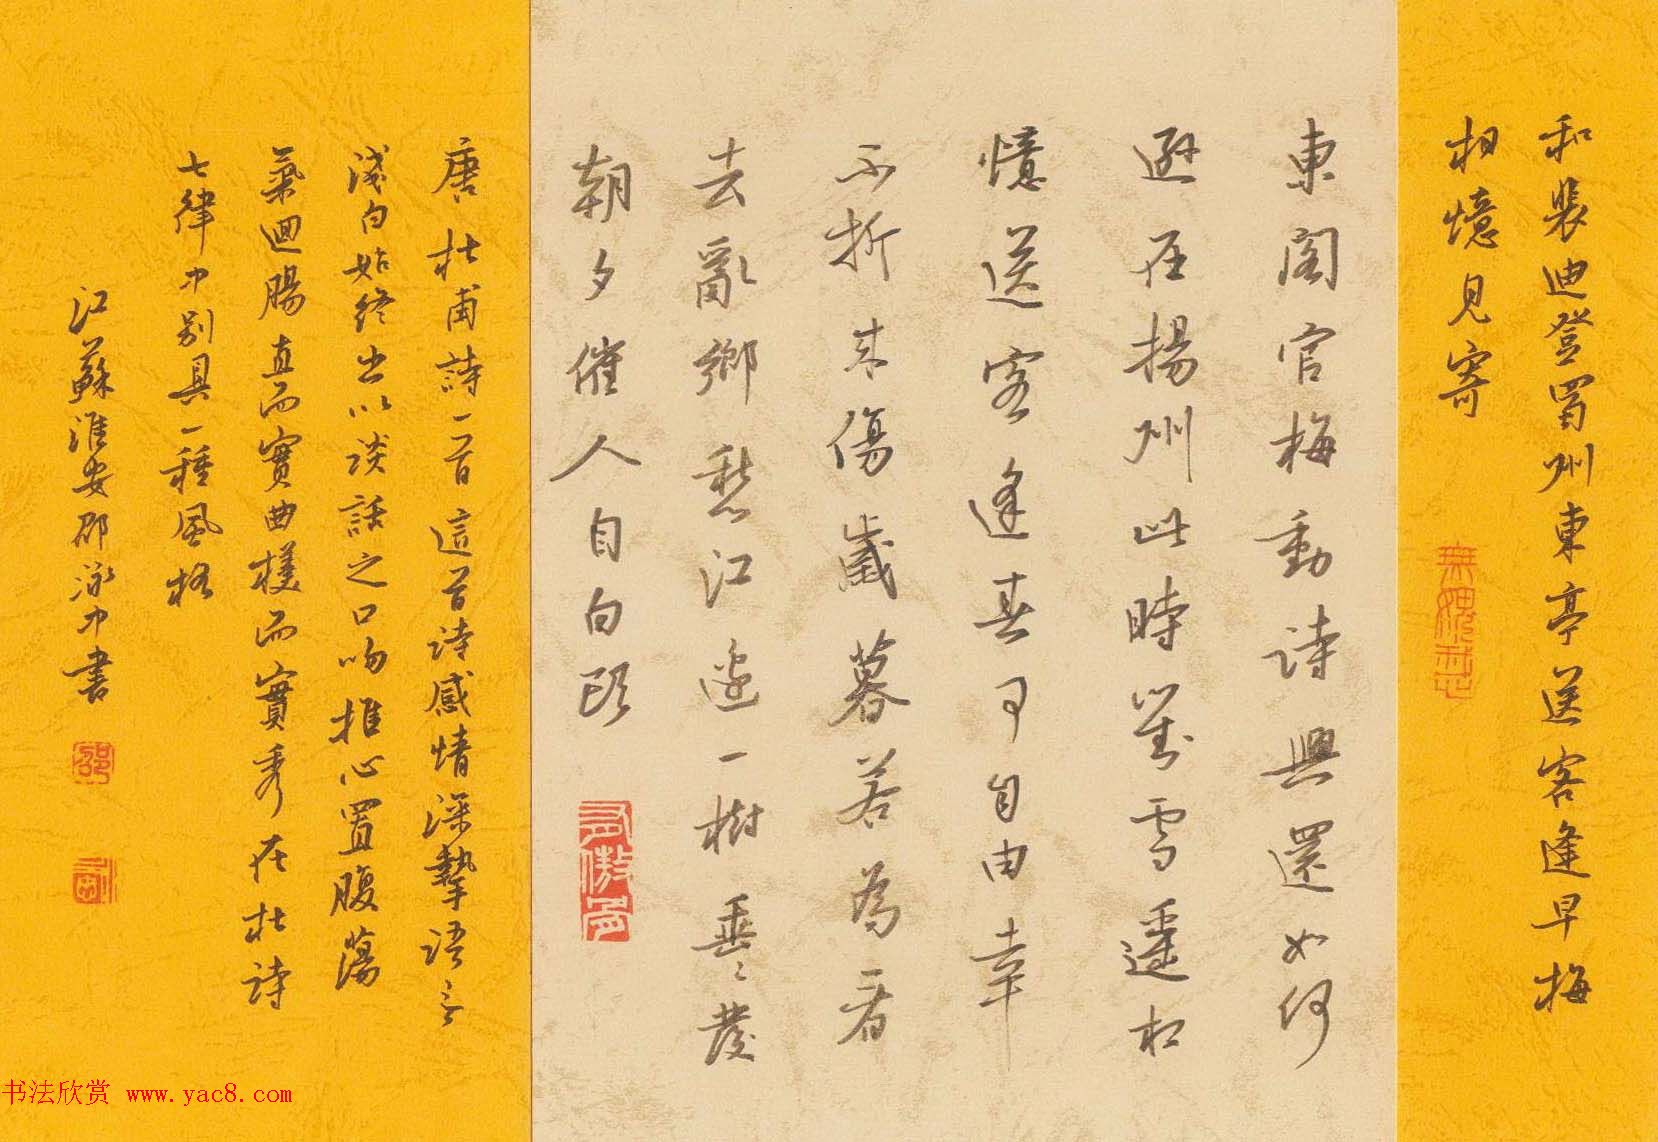 和裴迪登蜀州東亭送客逢早梅
相憶見寄
東閣官梅動詩興還如何
遜在揚州此時對雪遙相
憶送客逢春可自由幸
不折來傷歲暮若為看
去亂鄉愁江邊一樹垂〻發
朝夕催人自白頭
唐杜甫詩一首這首詩感情深摯語言
淺白始終出以談話之口吻推心置腹蕩
氣迴腸直而實曲樸而實秀在杜詩
七律中別具一種風格
江蘇淮安邵泳中書
邵
书法欣赏 www.yac8.com